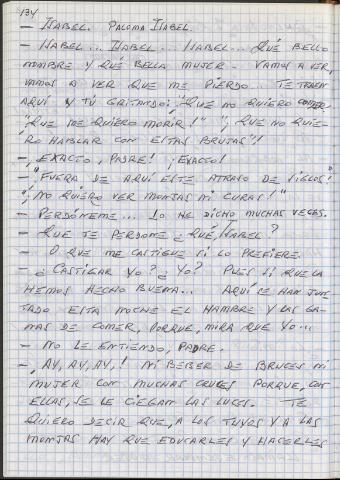 134
- ISABEL. PALOMA ISABEL.
- ISABEL... ISABEL... ISABEL... QUÉ BELLO
NOMBRE Y QUÉ BELLA MUJER. VAMOS A VER,
VAMOS A VER QUE ME PIERDO... TE TRAEN
AQUÍ Y TÚ GRITANDO: "¡QUE NO QUIERO COMER.
"¡QUE ME QUIERO MORIR!" "¡QUE NO QUIE-
RO HABLAR CON ESTAS BRUJAS"!
- ¡EXACTO, PADRE! ¡EXACTO!
- ¡"FUERA DE AQUÍ ESTE ATRASO DE SIGLOS!"
"¡NO QUIERO VER MONJAS NI CURAS!"
- PERDÓNEME... LO HE DICHO MUCHAS VECES.
- QUE TE PERDONE ¿QUÉ, ISABEL?
- O QUE ME CASTIGUE SI LO PREFIERE.
- ¿CASTIGAR YO? ¿YO? PUES SÍ QUE LA
HEMOS HECHO BUENA... AQUÍ SE HAN JUN-
TADO ESTA NOCHE EL HAMBRE Y LAS GA-
NAS DE COMER, PORQUE, MIRA QUE YO...
- NO LE ENTIENDO, PADRE.
- ¡AY, AY, AY,! NI BEBER DE BRUCES NI
MUJER CON MUCHAS CRUCES PORQUE, CON
ELLAS, SE LE CIEGAN LAS LUCES. TE
QUIERO DECIR QUE, A LOS TUYOS Y A LAS
MONJAS HAY QUE EDUCARLES Y HACERLES